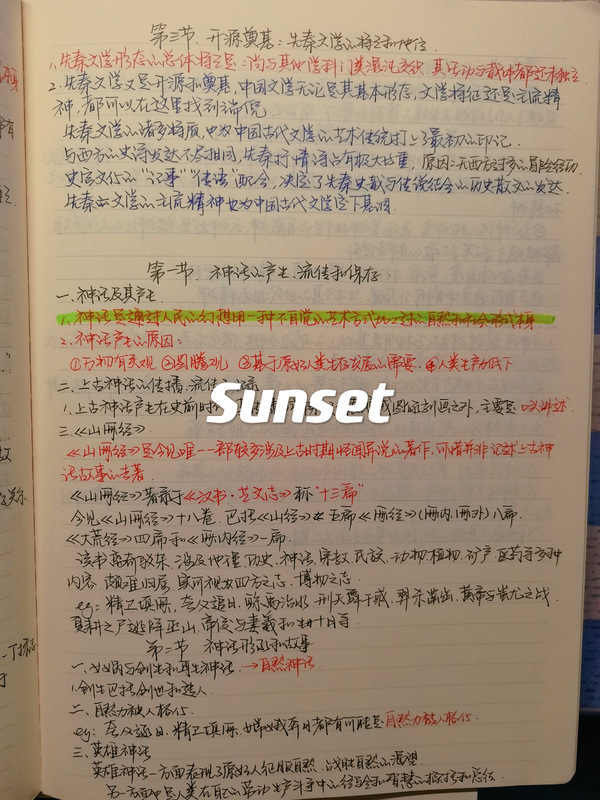 第三节. 开源奠基: 先秦文学的特色和地位.
1. 先秦文学形态的总体特色是: 尚与其他学科门类混沌交织, 其活动与载体都还未独立
2. 先秦文学又是开源和奠基, 中国文学无论是其基本形态, 文学特征还是主流精
神, 都可以在这里找到端倪
先秦文学的诸多特质, 也为中国古代文学的艺术传统打上了最初的印记.
与西方的史诗发达不尽相同, 先秦抒情诗占有极大比重, 原因: 无西方过多的冒险经动
史官文化的"记事""传语"配合, 决定了先秦史载与传说结合的历史散文的发达
先秦文学的主流精神也为中国古代文学定下基调
第一节. 神话的产生、流传和保存.
一. 神话及其产生.
1. 神话是通过人民的幻想用一种不自觉的艺术方式加工过的自然和社会形式本身
2. 神话产生的原因:
①万物有灵观 ②图腾观 ③基于原始人类生存发展的需要 ④人类生产力低下
二. 上古神话的传播、流传
1. 上古神话产生在史前时 图画刻画之外, 主要是口头讲述
Sunset
三.《山海经》
《山海经》是今见唯一一部较多涉及上古时期怪闻异说的著作, 可惜并非记述上古神
话故事的专著
《山海经》著录于《汉书·艺文志》称"十三篇"
今见《山海经》十八卷. 包括《山经》五篇《海经》(海内、海外)八篇.
《大荒经》四篇和《海内经》一篇.
该书内容驳杂, 涉及地理、历史、神话、宗教、民族、动物、植物、矿产、医药等多种
内容, 颇难归属, 实可视如四方之志, 博物之志.
eg: 精卫填海, 夸父追日, 鲧禹治水, 刑天舞干戚, 羿杀凿齿, 黄帝与蚩尤之战
夏耕之尸逃降巫山, 帝俊与妻羲和生十日等
第二节 神话形态和故事
一. 创生和再生神话. →自然神话.
1. 创生包括创世和造人
二. 自然力被人格化.
eg: 夸父逐日, 精卫填海, 嫦娥奔月都有可能是自然力被人格化.
三. 英雄神话
英雄神话一方面表现了原始人征服自然, 战胜自然的渴望
另一方面也是人类在自己的劳动生产斗争中的经验和智慧的概括和总结